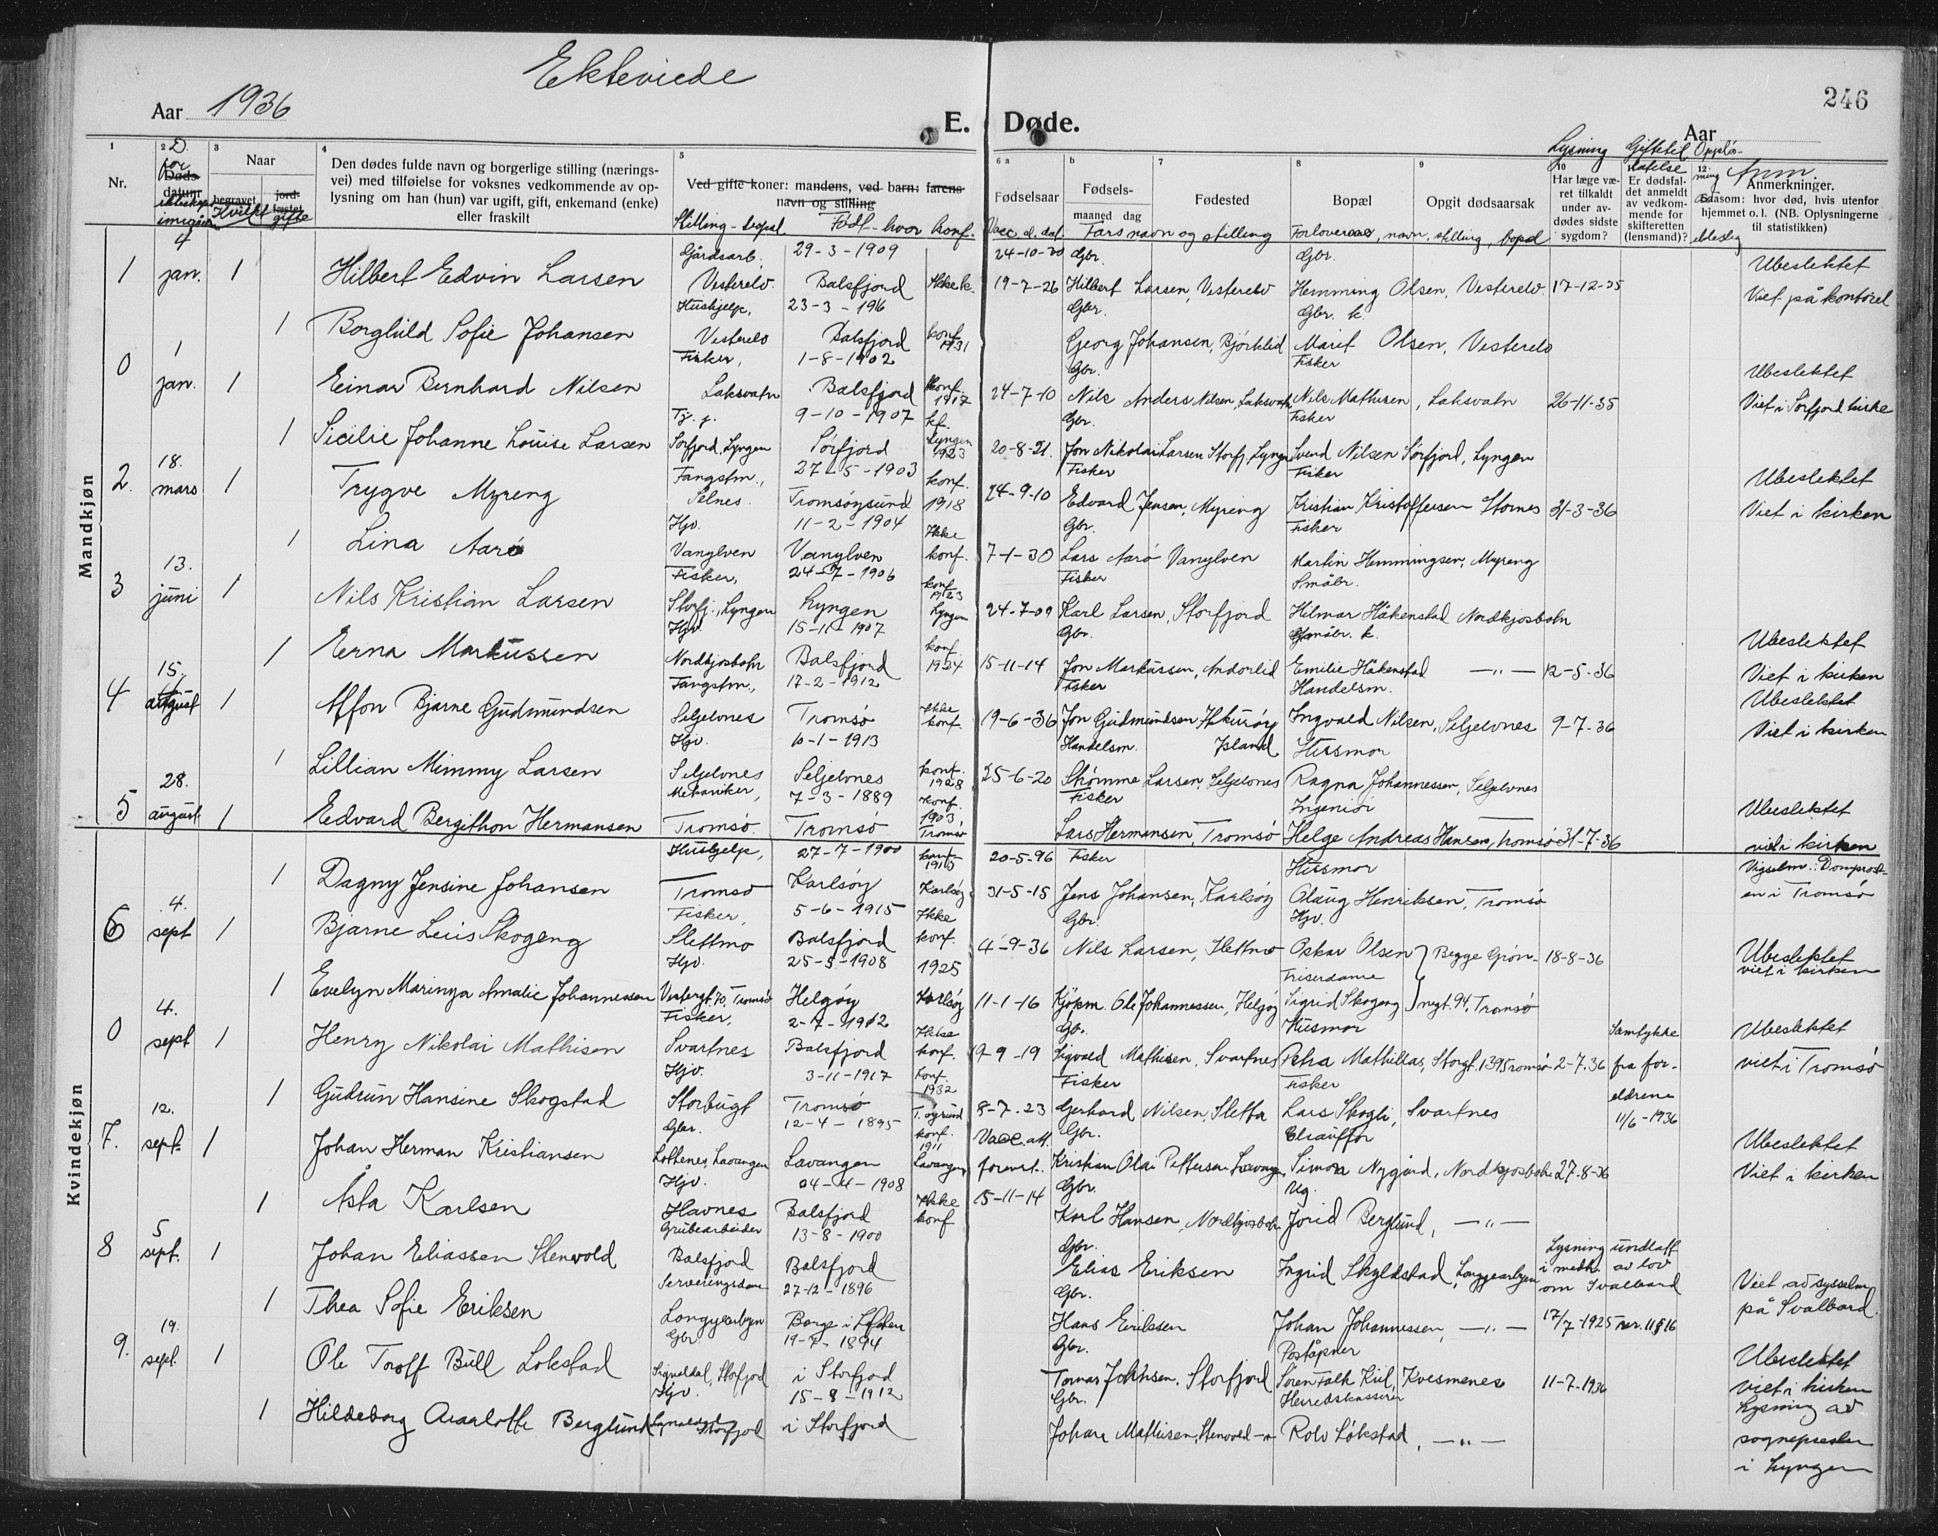 Ekteviede
246
Aar 1936
E. Døde.
Aar
1
2
3
4
5
6 a
b
7
8
9
10
12
Nr.
Døds-
datum
Naar
begravet
jord-
fæstet
Hvilke
gifte
Den dødes fulde navn og borgerlige stilling (nærings-
vei) med tilføielse for voksnes vedkommende av op-
lysning om han (hun) var ugift, gift, enkemand (enke)
eller fraskilt
Ved gifte koner: mandens, ved barn: farens
navn og stilling
Stilling - bopæl. Født - hvor Konf.
Fødselsaar
Fødsels-
maaned dag
Fødested
Bopæl
Opgit dødsaarsak
Vacc. d. dat. Fars navn og stilling Forloverens, navn, stilling, bopæl
Lysning
Har læge væ-
ret tilkaldt
under av-
dødes sidste
sygdom?
Giftetil
latelse
Er dødsfal-
det anmeldt
av vedkom-
mende for
skifteretten
(lensmand)?
Anm.
Anmerkninger.
Saasom: hvor død, hvis utenfor
hjemmet o. l. (NB. Oplysningerne
til statistikken)
Mandkjøn
4 Gårdsarb. 29-3-1909 24-10-30 Gbr. Gbr. Ubeslektet
1 jan. 1 Hilbert Edvin Larsen Vesterelv. Balsfjord Ikke k. 19-7-26 Hilbert Larsen, Vesterelv Hemming Olsen, Vesterelv 17-12-35 Viet på kontoret
Hushjelp, 23-3-1916 Gbr. Gbr. k.
1 Borghild Sofie Johansen Vesterelv Balsfjord konf. 1931 Georg Johansen, Bjørklid Marit Olsen, Vesterelv
1 Fisker, 1-8-1902 Gbr. Fisker Ubeslektet
0 jan. 1 Einar Bernhard Nilsen Laksvatn Balsfjord Konf. 1917 24-7-10 Nils Anders Nilsen, Laksvatn Nils Mathisen, Laksvatn 26-11-35 Viet i Sørfjord kirke
Tj. p. 9-10-1907 kf. Gbr. Fisker
1 Sicilie Johanne Louise Larsen Sørfjord, Lyngen Sørfjord Lyngen 1923 20-8-21. Jon Nikolai Larsen Storfj, Lyngen Svend Nilsen Sørfjord, Lyngen
18. Fangstm., 27-5-1903 konf. Fisker Fisker Ubeslektet
2. mars 1 Trygve Myreng Selnes. Tromsøysund 1918 24-9-10 Edvard Jensen, Myreng Kristian Kristoffersen Stornes 21-3-36 Viet i kirken
Hjv. 11-2-1904 Ikke Gbr. Fisker
1 Lina Aarø Vanylven Vanylven konf. 7-1-30 Lars Aarø Vanylven Martin Hemmingsen, Myreng
13. Fisker, 24-7-1906 konf. 1923 Fisker Småbr.
3 juni 1 Nils Kristian Larsen Storfj., Lyngen Lyngen Lyngen 24-7-09 Karl Larsen, Storfjord Hilmar Håkenstad Nordkjosbotn
Hjv. 15-11-1907 konf. Gbr. Småbr. k. Ubeslektet
1 Erna Markussen Nordkjosbotn Balsfjord 1924 15-11-14 Jon Markussen, Andorlid Emilie Håkenstad —"— 12-5-36 Viet i kirken
15. Fangstm., 17-2-1912 Fisker Handelsm. Ubeslektet
4 august 1 Alfon Bjarne Gudmundsen Seljelvnes Tromsø Ikke konf. 19-6-36 Jon Gudmundsen Island Ingvald Nilsen, Seljelvnes 9-7-36 Viet i kirken
Hjv. 10-1-1913 Handelsm. Husmor
1 Lillian Mimmy Larsen Seljelvnes Seljelvnes konf. 1928 25-6-20 Skømme Larsen, Seljelvnes Ragna Johannessen, Seljelvnes
28. Mekaniker, 7-3-1889 konf. 1903, Fisker Ingeniør Ubeslektet
5 august 1 Edvard Bergithon Hermansen Tromsø. Tromsø Tromsø Lars Hermansen, Tromsø Helge Andreas Hansen, Tromsø 31-7-36 viet i kirken
Kvindekjøn
Hushjelp, 27-7-1900 konf. 20-5-96 Fisker Husmor Vigselm.: Domprost-
1 Dagny Jensine Johansen Tromsø Karlsøy Karlsøy 31-5-15 Jens Johansen, Karlsøy Olaug Henriksen, Tromsø en i Tromsø
4. Fisker, 5-6-1915 Ikke Gbr. Hjv.
6 sept 1 Bjarne Leiis Skogeng Slettmo Balsfjord konf. 4-9-36 Nils Larsen, Slettmo Oskar Olsen } Begge Grøn- 18-8-36 Ubeslektet
Hjv. 25-5-1908 1925 Friserdame viet i kirken
1 Evelyn Maringa Amalie Johannessen Vestergt. 70, Tromsø Helgøy Karlsøy 11-1-16 Kjøpm. Ole Johannessen, Helgøy Sigrid Skogeng } negt. 94, Tromsø
4. Fisker, 2-7-1912 Ikke Gbr. Husmor Samtykke Ubeslektet
0 sept 1 Henry Nikolai Mathisen Svartnes Balsfjord konf. 19-9-19 Sigvald Mathisen, Svartnes Petra Mathillas, Storgt. 139 Tromsø 2-7.36 fra for- viet i Tromsø
Hjv. 3-11-1917 Konf. 1932 Fisker Fisker eldrene
1 Gudrun Hansine Skogstad Storbugt Tromsø T. øysund 8-7-23 Gerhard Nilsen, Sletta Lars Skogli, Svartnes 11/6-1936
12. Gbr. 12-4-1895 konf. 1911 Vacc. att. Gbr. Chauffør Ubeslektet
7. sept. 1 Johan Herman Kristiansen Loktenes, Lavangen Lavangen Lavangen forevist. Kristian Olai Pettersen Lavangen Simon Nygård, Nordkjosbotn 27-8-36 Viet i kirken
Hjv. 04-4-1908 Ikke 15-11-14 Gbr. Ug.
1 Åsta Karlsen Havnes Balsfjord konf Karl Hansen, Nordkjosbotn Jorid Berglund, —"—
5 Grubearbeider 13-8-1900 Gbr. Lysning undlatt
8 sept. 1 Johan Eliassen Stenvold Balsfjord Balsfjord Elias Eriksen Ingrid Skyldstad, Longyearbyen i medh. av lov Viet av sysselm.
Serveringsdame 27-12-1896 Gbr. om Svalbard på Svalbard.
1 Thea Sofie Eriksen Longyearbyn Borge i Lofoten Hans Eriksen Johan Johannessen, —"— 17/7-1925
19. Gbr. 19-7-1894 Gbr. Poståpner Ubeslektet
9. sept. 1 Ole Tnoff Bull Lokstad Signaldal, Storfjord i Storfjord Tomas Johnsen, Storfjord Søren Falk Kiil, Kvesmenes 11-7-1936 viet i kirken
Hjv. 15-8-1912 Gbr. Herredskasserer Lysning av
1 Hildeborg Ararlotte Berglund Signaldal Storfjord i Storfjord Johan Mathisen, Stenvold Rolv Løkstad, —"— sognepresten
i Lyngen